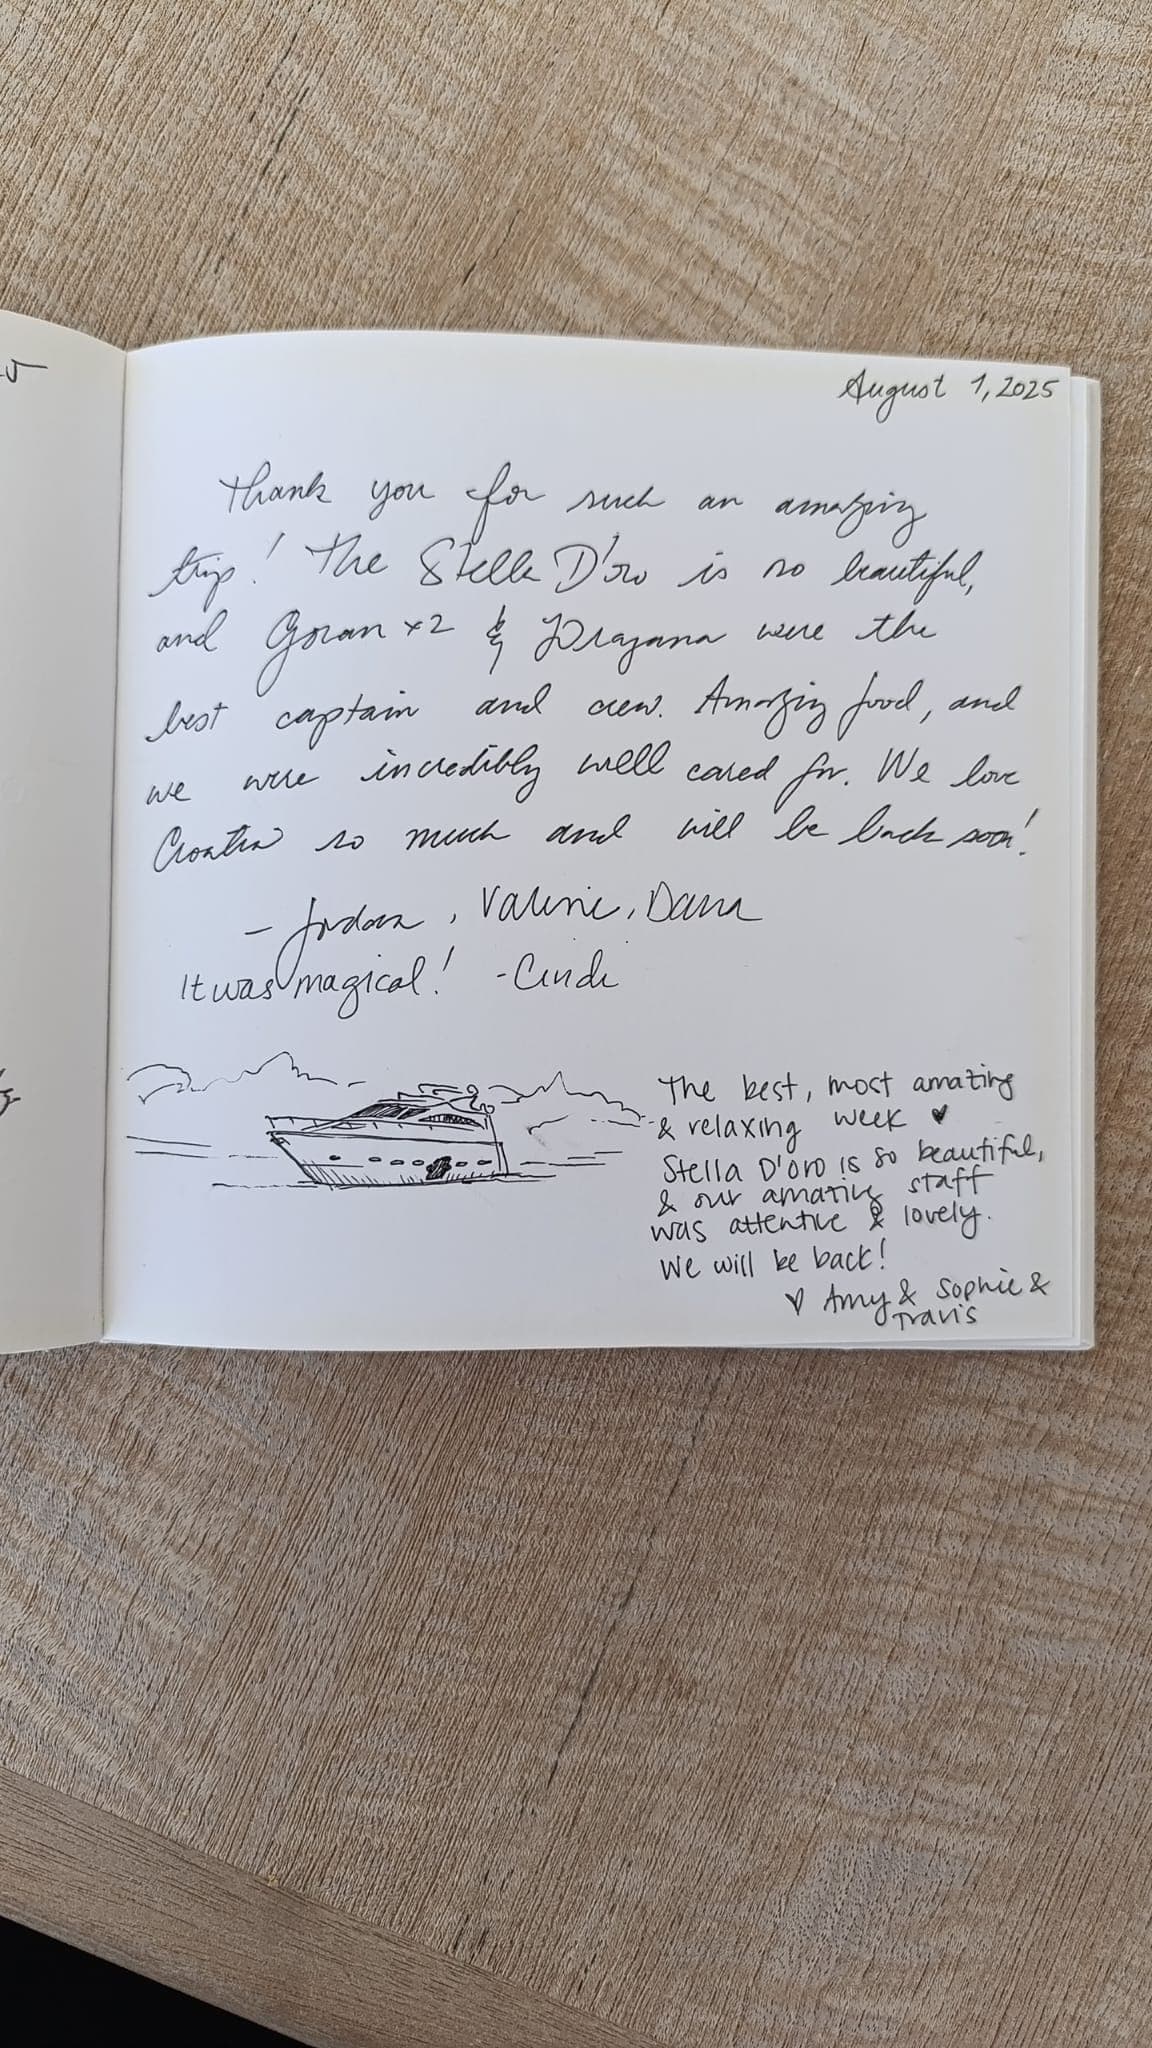 August 1, 2025
Thank you for such an amazing
trip! The Stella D'oro is so beautiful,
and Goran x2 & Dragana were the
best captain and crew. Amazing food, and
we were incredibly well cared for. We love
Croatia so much and will be back soon!
- Jordan, Valerie, Dana
It was magical! -Cindi
The best, most amazing
& relaxing week ♥
Stella D'oro is so beautiful,
& our amazing staff
was attentive & lovely.
We will be back!
♡ Amy & Sophie &
Travis